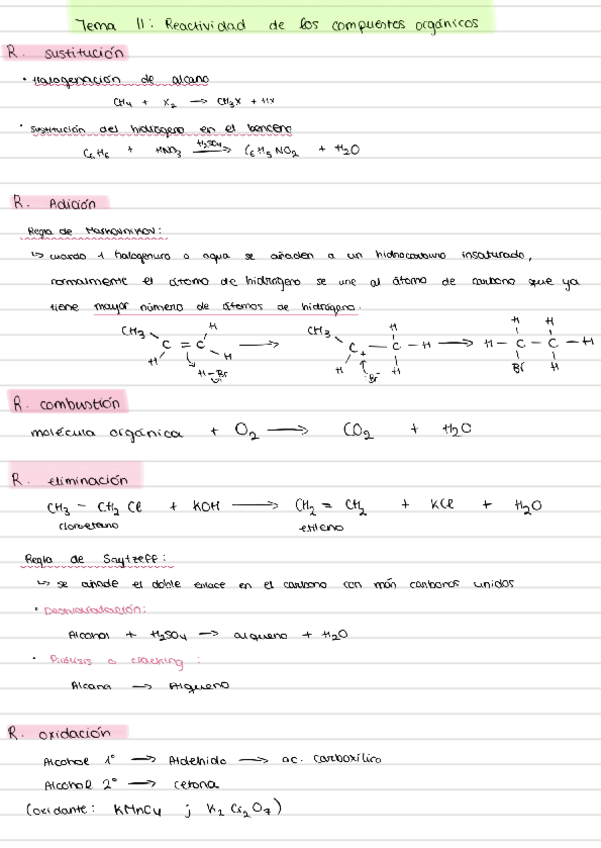 Tema 11: Reactividad de los compuestos orgánicos
R. sustitución
• Halogenación de alcano
CH4 + X2 → CH3X + HX
• sustitución del hidrógeno en el benceno
C6H6 + HNO3 H2SO4→ C6H5NO2 + H2O
R. Adición
Regla de Markovnikov:
↳ cuando 1 halogenuro o agua se añaden a un hidrocarburo insaturado,
normalmente el átomo de hidrógeno se une al átomo de carbono que ya
tiene mayor número de átomos de hidrógeno.
CH3 H CH3 H H H
C = C → C+ – C – H → H – C – C – H
H H H H Br H
H–Br Br
R. combustión
molécula orgánica + O2 → CO2 + H2O
R. eliminación
CH3 – CH2 Cl + KOH → CH2 = CH2 + KCl + H2O
cloroetano etileno
Regla de Saytzeff:
↳ se añade el doble enlace en el carbono con más carbonos unidos
• Deshidratación:
Alcohol + H2SO4 → alqueno + H2O
• Pirólisis o cracking:
Alcano → Alqueno
R. oxidación
Alcohol 1º → Aldehido → ac. carboxílico
Alcohol 2º → cetona
(oxidante: KMnO4 ; K2Cr2O7)